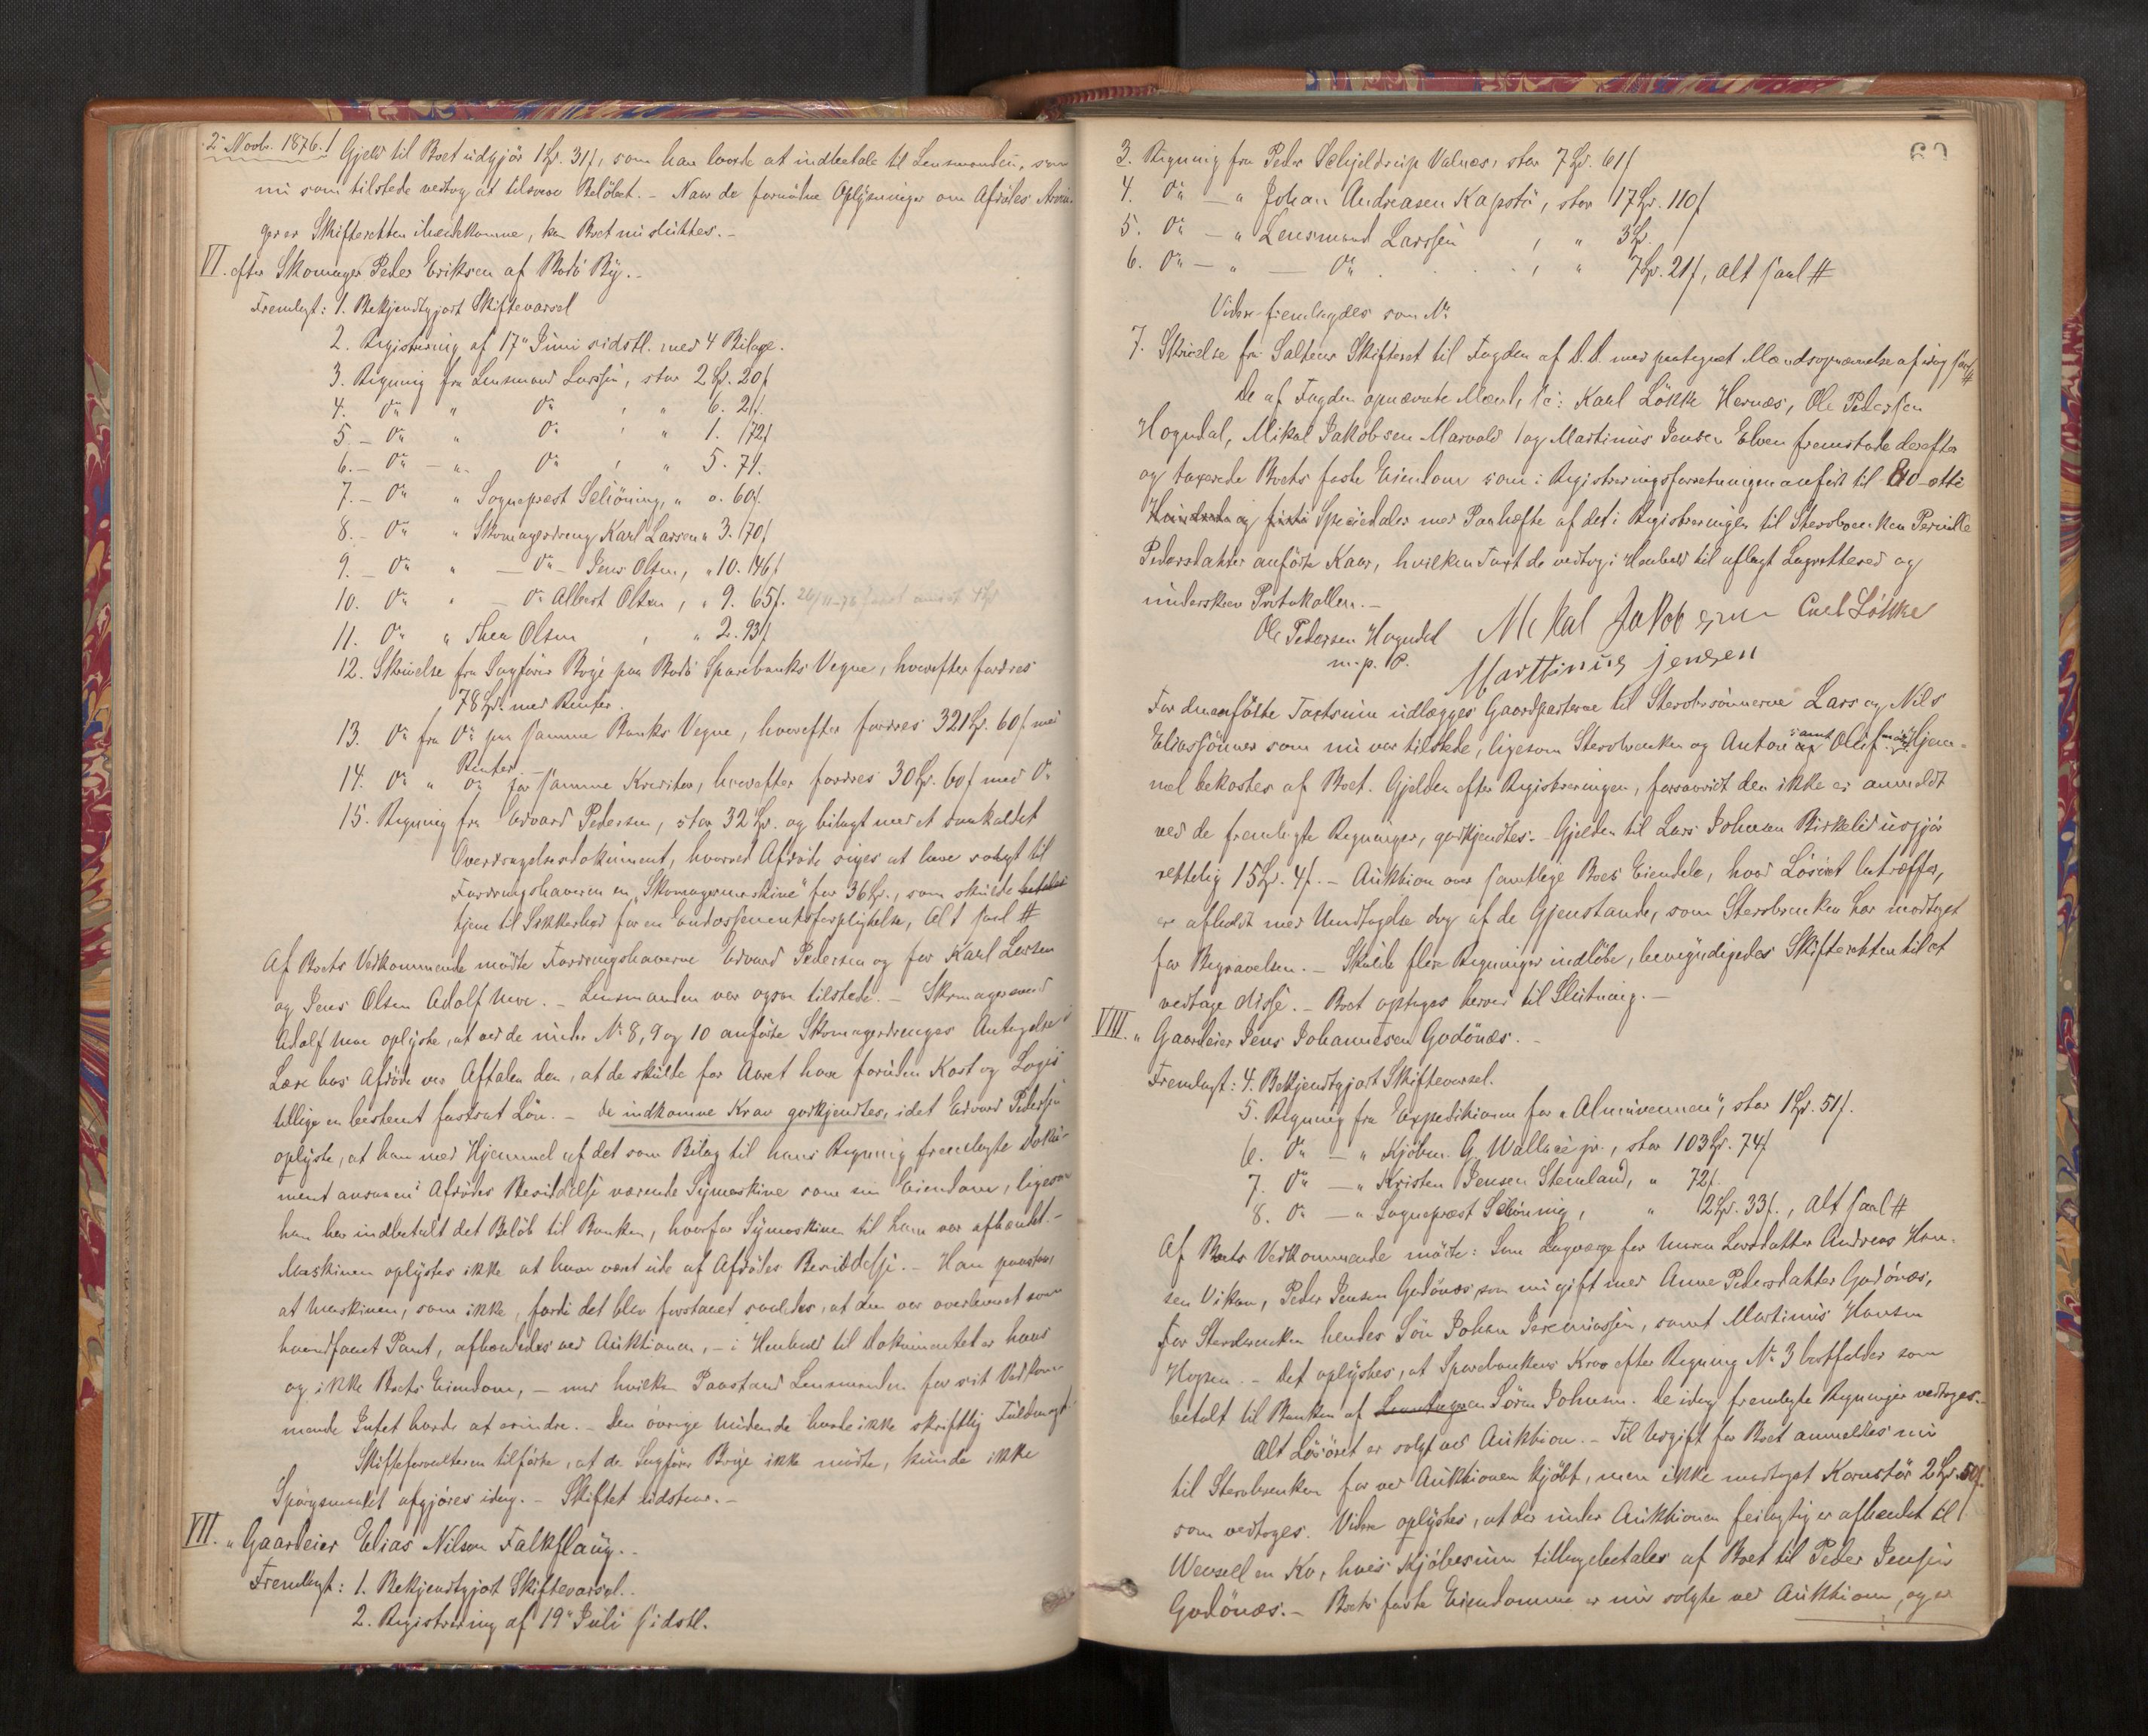 2 Novbr. 1876.
Gjeld til Boet udgjör 1 Sp. 31 s, som han lovede at indbetale til Lensmanden, som
nu som tilstede vedtog at tilsvare Belöbet. - Naar de fornödne Oplysninger om Afdödes Arvin-
ger er Skifteretten ihændekomne, kan Boet nu sluttes. -
VI. efter Skomager Peder Eriksen af Bodö By. -
Fremlagt: 1. Bekjendtgjort Skiftevarsel
2. Registrering af 17de Juni sidstl. med 4 Bilage.
3. Regning fra Lensmand Larssen, stor 2 Sp. 20 s
4. Do " Do , " 6. 21.
5. - Do " Do , " 1. 72 s
6. - Do - " - Do , " 5. 71.
7. - Do " Sognepræst Schöning, " 0. 60 s.
8. - Do " Skomagerdreng Karl Larsen " 3. 70 s
9. - Do " - Do - Jens Olsen, " 10. 46 s
10. Do " - Do Albert Olsen, " 9. 65 s. 26/11-76
11. Do " Thea Olsen , " 2. 93 s
12. Skrivelse fra Sagförer Böge paa Bodö Sparebanks Vegne, hvorefter fordres
78 Sp. med Renter.
13. Do fra Do paa samme Banks Vegne, hvorefter fordres 321 Sp. 60 s. med
Renter -
14. Do " Do for samme Kreditor, hvorefter fordres 30 Sp. 60 s med Do
15. Regning fra Edvard Pedersen, stor 32 Sp. og bilagt med et saakaldet
Overdragelsesdokument, hvorved Afdöde siges at have solgt til
Fordringshaveren en "Skomagermaskine" for 36 Sp., som skulde betales
tjene til Sikkerhed for en Endossementsforpligtelse, Alt saal #
Af Boets Vedkommende mödte Fordringshaverne Edvard Pedersen og for Karl Larsen
og Jens Olsen Adolf Moe. - Lensmanden var ogsaa tilstede. - Skomagersvend
Adolf Moe oplyste, at ved de under No 8, 9 og 10 anförte Skomagerdrenges Antagelse i
Lære hos Afdöde var Aftalen den, at de skulde for Aaret have foruden Kost og Logis
tillige en bestemt fastsat Lön. - De indkomne Krav godkjendtes, idet Edvard Pedersen
oplyste, at han med Hjemmel af det som Bilag til hans Regning fremlagte Doku-
ment ansaa en i Afdödes Besiddelse værende Symaskine som sin Eiendom, ligesom
han har indbetalt det Belöb til Banken, hvorfor Symaskinen til ham var afhændet. -
Maskinen oplystes ikke at have været ude af Afdödes Besiddelse. - Han paastod
at Maskinen, som ikke, fordi det blev forstaaet saaledes, at den var overleveret som
haandfaaet Pant, afhændedes ved Auktionen, - i Henhold til Dokumentet er hans
og ikke Boets Eiendom, - mod hvilken Paastand Lensmanden for sit Vedkom-
mende Intet havde at erindre. - Den övrige Mödende havde ikke skriftlig Fuldmagt
Skifteforvalteren tilförte, at da Sagförer Böge ikke mödte, kunde ikke
Spörgsmaalet afgjöres idag. - Skiftet udstaar. -
VII. " Gaardeier Elias Nilsen Falkflaug. -
Fremlagt: 1. Bekjendtgjort Skiftevarsel.
2. Registrering af 19de Juli sidstl.
3. Regning fra Peder Schjeldrup Valnes, stor 7 Sp. 61 s
4. Do - " Johan Andreasen Kapstö, stor 17 Sp. 110 s
5. Do - " Lensmand Larssen , " 3 Sp.
6. Do - " - Do . . . , " 7 Sp. 21 s, alt saal #
Videre fremlagdes som No
7. Skrivelse fra Saltens Skifteret til Fogden af D. D. med paategnet Mændsopnævnelse af idag saal #
De af Fogden opnævnte Mænd, sc: Karl Lökke Hernæs, Ole Pedersen
Hogndal, Mikal Jakobsen Marvold og Martinus Jensen Elven fremstode derefter
og taxerede Boets faste Eiendom som i Registreringsforretningen anfört til 80 - otti
Hundrede og firti Speciedaler med Paahefte af det i Registreringen til Stervboenken Pernille
Pedersdatter anförte Kaar, hvilken Taxt de vedtog i Henhold til aflagt Lagrettesed og
underskrev Protokollen. -
Ole Pedersen Hogndal Mekal Jakobsen Carl Lökke
m. p. P. Marttinus jensen
For den ansatte Taxtsum udlægges Gaardparterne til Stervbosönnerne Lars og Nils
Eliassönner som nu var tilstede, ligesom Stervboenken og Anton samt Oluf. Hjem-
mel bekostes af Boet. Gjelden efter Registreringen, forsaavidt den ikke er anmeldt
ved de fremlagte Regninger, godkjendtes. - Gjelden til Lars Johnsen Birkelid udgjör
rettelig 15 Sp. 4 s. - Auktion over samtlige Boets Eiendele, hvad Lösöret betræffer,
er afholdt med Undtagelse dog af de Gjenstande, som Stervboenken har modtaget
for Begravelsen. - Skulde flere Regninger indlöbe, bemyndigedes Skifteretten til at
vedtage disse. - Boet optages herved til Slutning. -
VIII. " Gaardeier Jens Johannesen Godönæs. -
Fremlagt: 4. Bekjendtgjort Skiftevarsel.
5. Regning fra Expeditionen for "Almuevennen", stor 1 Sp. 51 s.
6. Do - " Kjöbm. G. Wallace jr., stor 103 Sp. 74 s
7. Do - " Kristen Jensen Stemland, " 72 s.
8. Do - " Sognepræst Schöning, " 2 Sp. 33 s., alt saal #
Af Boets Vedkommende mödte: Som Lagværge for Maren Larsdatter Andreas Han-
sen Vikan, Peder Jensen Godönæs som nu gift med Anne Pedersdatter Godönæs,
For Stervboenken hendes Sön Johan Jeremiassen, samt Martinus Hansen
Hopen. - Det oplystes, at Sparebankens Krav efter Regning No 3 bortfalder som
betalt til Banken af Sören Johnsen. De idag fremlagte Regninger vedtoges. -
Alt Lösöret er solgt ved Auktion. - Til Udgift for Boet anmeldtes nu
til Stervboenken for ved Auktionen kjöbt, men ikke modtaget Kornstör 2 Sp. 50 s.
som vedtoges. Videre oplystes, at der under Auktionen feilagtig er afhændet til
Wensell en Ko, hvis Kjöbesum tilbagebetales af Boet til Peder Jensen
Godönæs. - Boets faste Eiendomme er nu solgte ved Auktion, og er